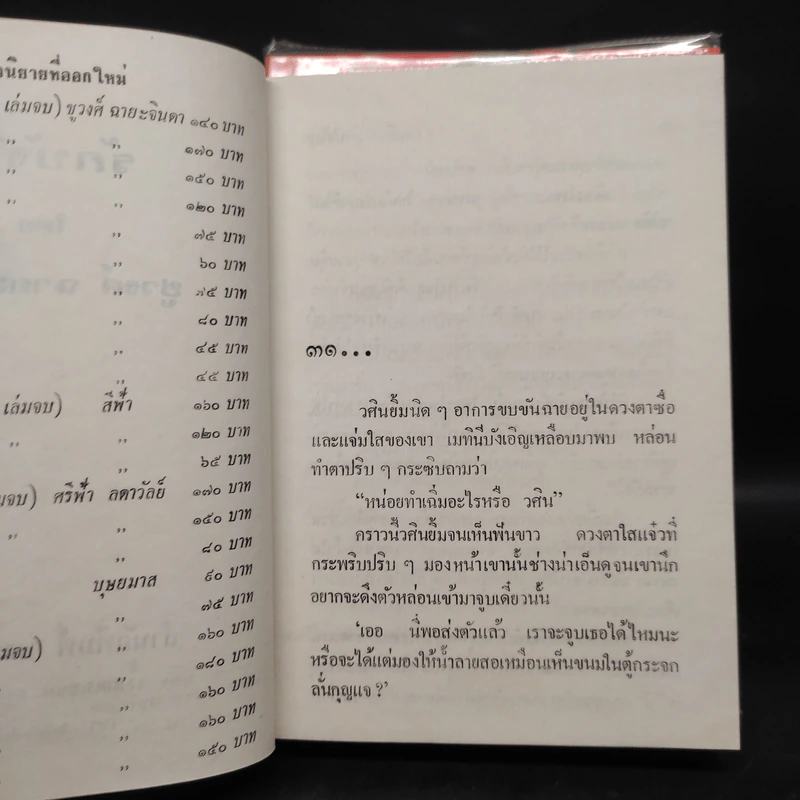 นิยายที่ออกใหม่
เล่มจบ) ชูวงศ์ ฉายะจินดา ๑๔๐ บาท
,, ,, ๑๗๐ บาท
,, ,, ๑๕๐ บาท
,, ,, ๑๒๐ บาท
,, ๗๕ บาท
,, ๖๐ บาท
,, ๗๕ บาท
,, ๘๐ บาท
,, ๔๕ บาท
,, ๔๕ บาท
เล่มจบ) สีฟ้า ๑๖๐ บาท
,, ,, ๑๒๐ บาท
,, ๖๕ บาท
มจบ) ศรีฟ้า ลดาวัลย์ ๑๗๐ บาท
,, ,, ๑๕๐ บาท
,, ๘๐ บาท
บุษยมาส ๙๐ บาท
,, ๗๕ บาท
,, ๑๖๐ บาท
มจบ) ,, ๑๘๐ บาท
,, ๑๖๐ บาท
,, ๑๖๐ บาท
,, ๑๕๐ บาท
๓๑...
วศินยิ้มนิด ๆ อาการขบขันฉายอยู่ในดวงตาซื่อ
และแจ่มใสของเขา เมทินีบังเอิญเหลือบมาพบ หล่อน
ทำตาปริบ ๆ กระซิบถามว่า
“หน่อยทำเฉิ่มอะไรหรือ วศิน”
คราวนี้วศินยิ้มจนเห็นฟันขาว ดวงตาใสแจ๋วที่
กระพริบปริบ ๆ มองหน้าเขานั้นช่างน่าเอ็นดูจนเขานึก
อยากจะดึงตัวหล่อนเข้ามาจูบเดี๋ยวนั้น
‘เออ นี่พอส่งตัวแล้ว เราจะจูบเธอได้ไหมนะ
หรือจะได้แต่มองให้น้ำลายสอเหมือนเห็นขนมในตู้กระจก
ลั่นกุญแจ ?’